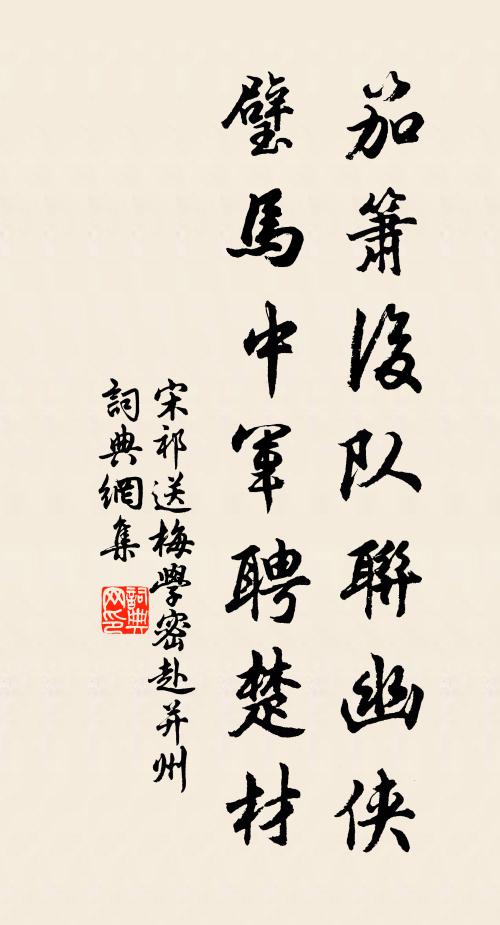 笳簫後队聯幽侠
璧馬中軍聘楚材
宋祁送梅學密赴并州
詞典網集
詞典网印